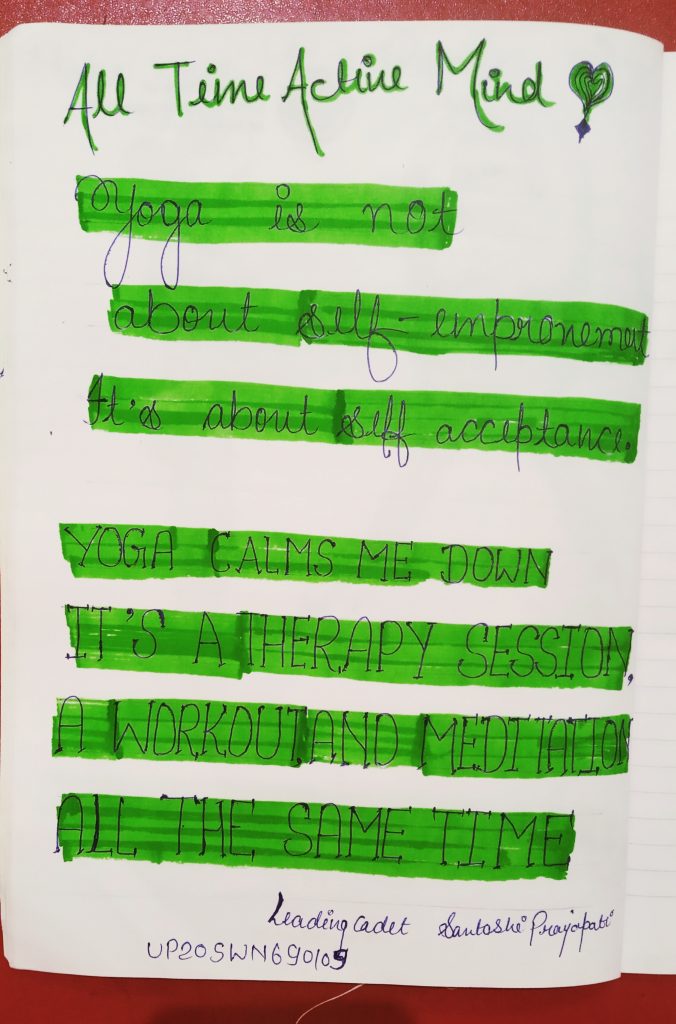 All Time Active Mind
Yoga is not
about self-improvement
It's about self acceptance.
YOGA CALMS ME DOWN
IT'S A THERAPY SESSION,
A WORKOUT AND MEDITATION
ALL THE SAME TIME
Leading Cadet Santoshi Prajapati
UP20SWN690105